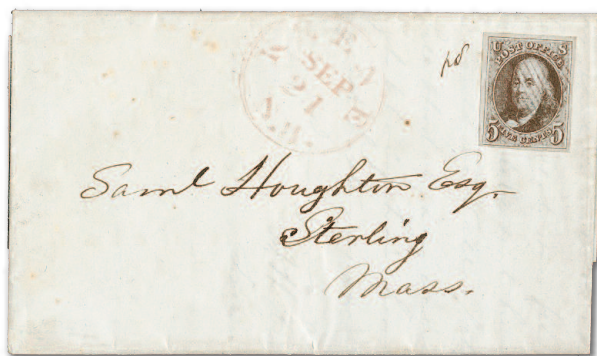 SEP
21
U S
POST OFFICE
5 FIVE CENTS 5
Saml Houghton Esq.
Sterling
Mass.